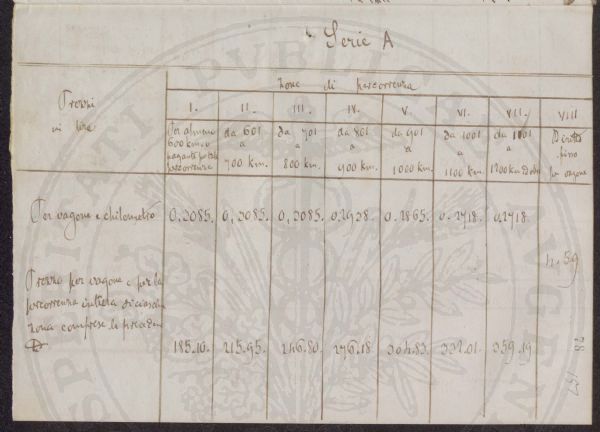 Serie A
Prezzi
in lire
Zone di percorrenza
I. II. III. IV. V. VI. VII. VIII
Per almeno
600 km o
paganti per tale
percorrenza
da 601
a
700 km.
da 701
a
800 km.
da 801
a
900 km.
da 901
a
1000 km.
da 1001
a
1100 km.
da 1101
a
1200 km ed oltre
Diritto
fisso
per vagone
Per vagone e chilometro 0,3085. 0,3085. 0,3085. 0.2938. 0.2865. 0.2718. 0.2718.
4.59
Prezzo per vagone e per la
percorrenza intiera di ciascuna
zona comprese le precedenti
185.10. 215.95. 246.80. 276.18 304.83. 332.01. 359.19
PUBLICAE